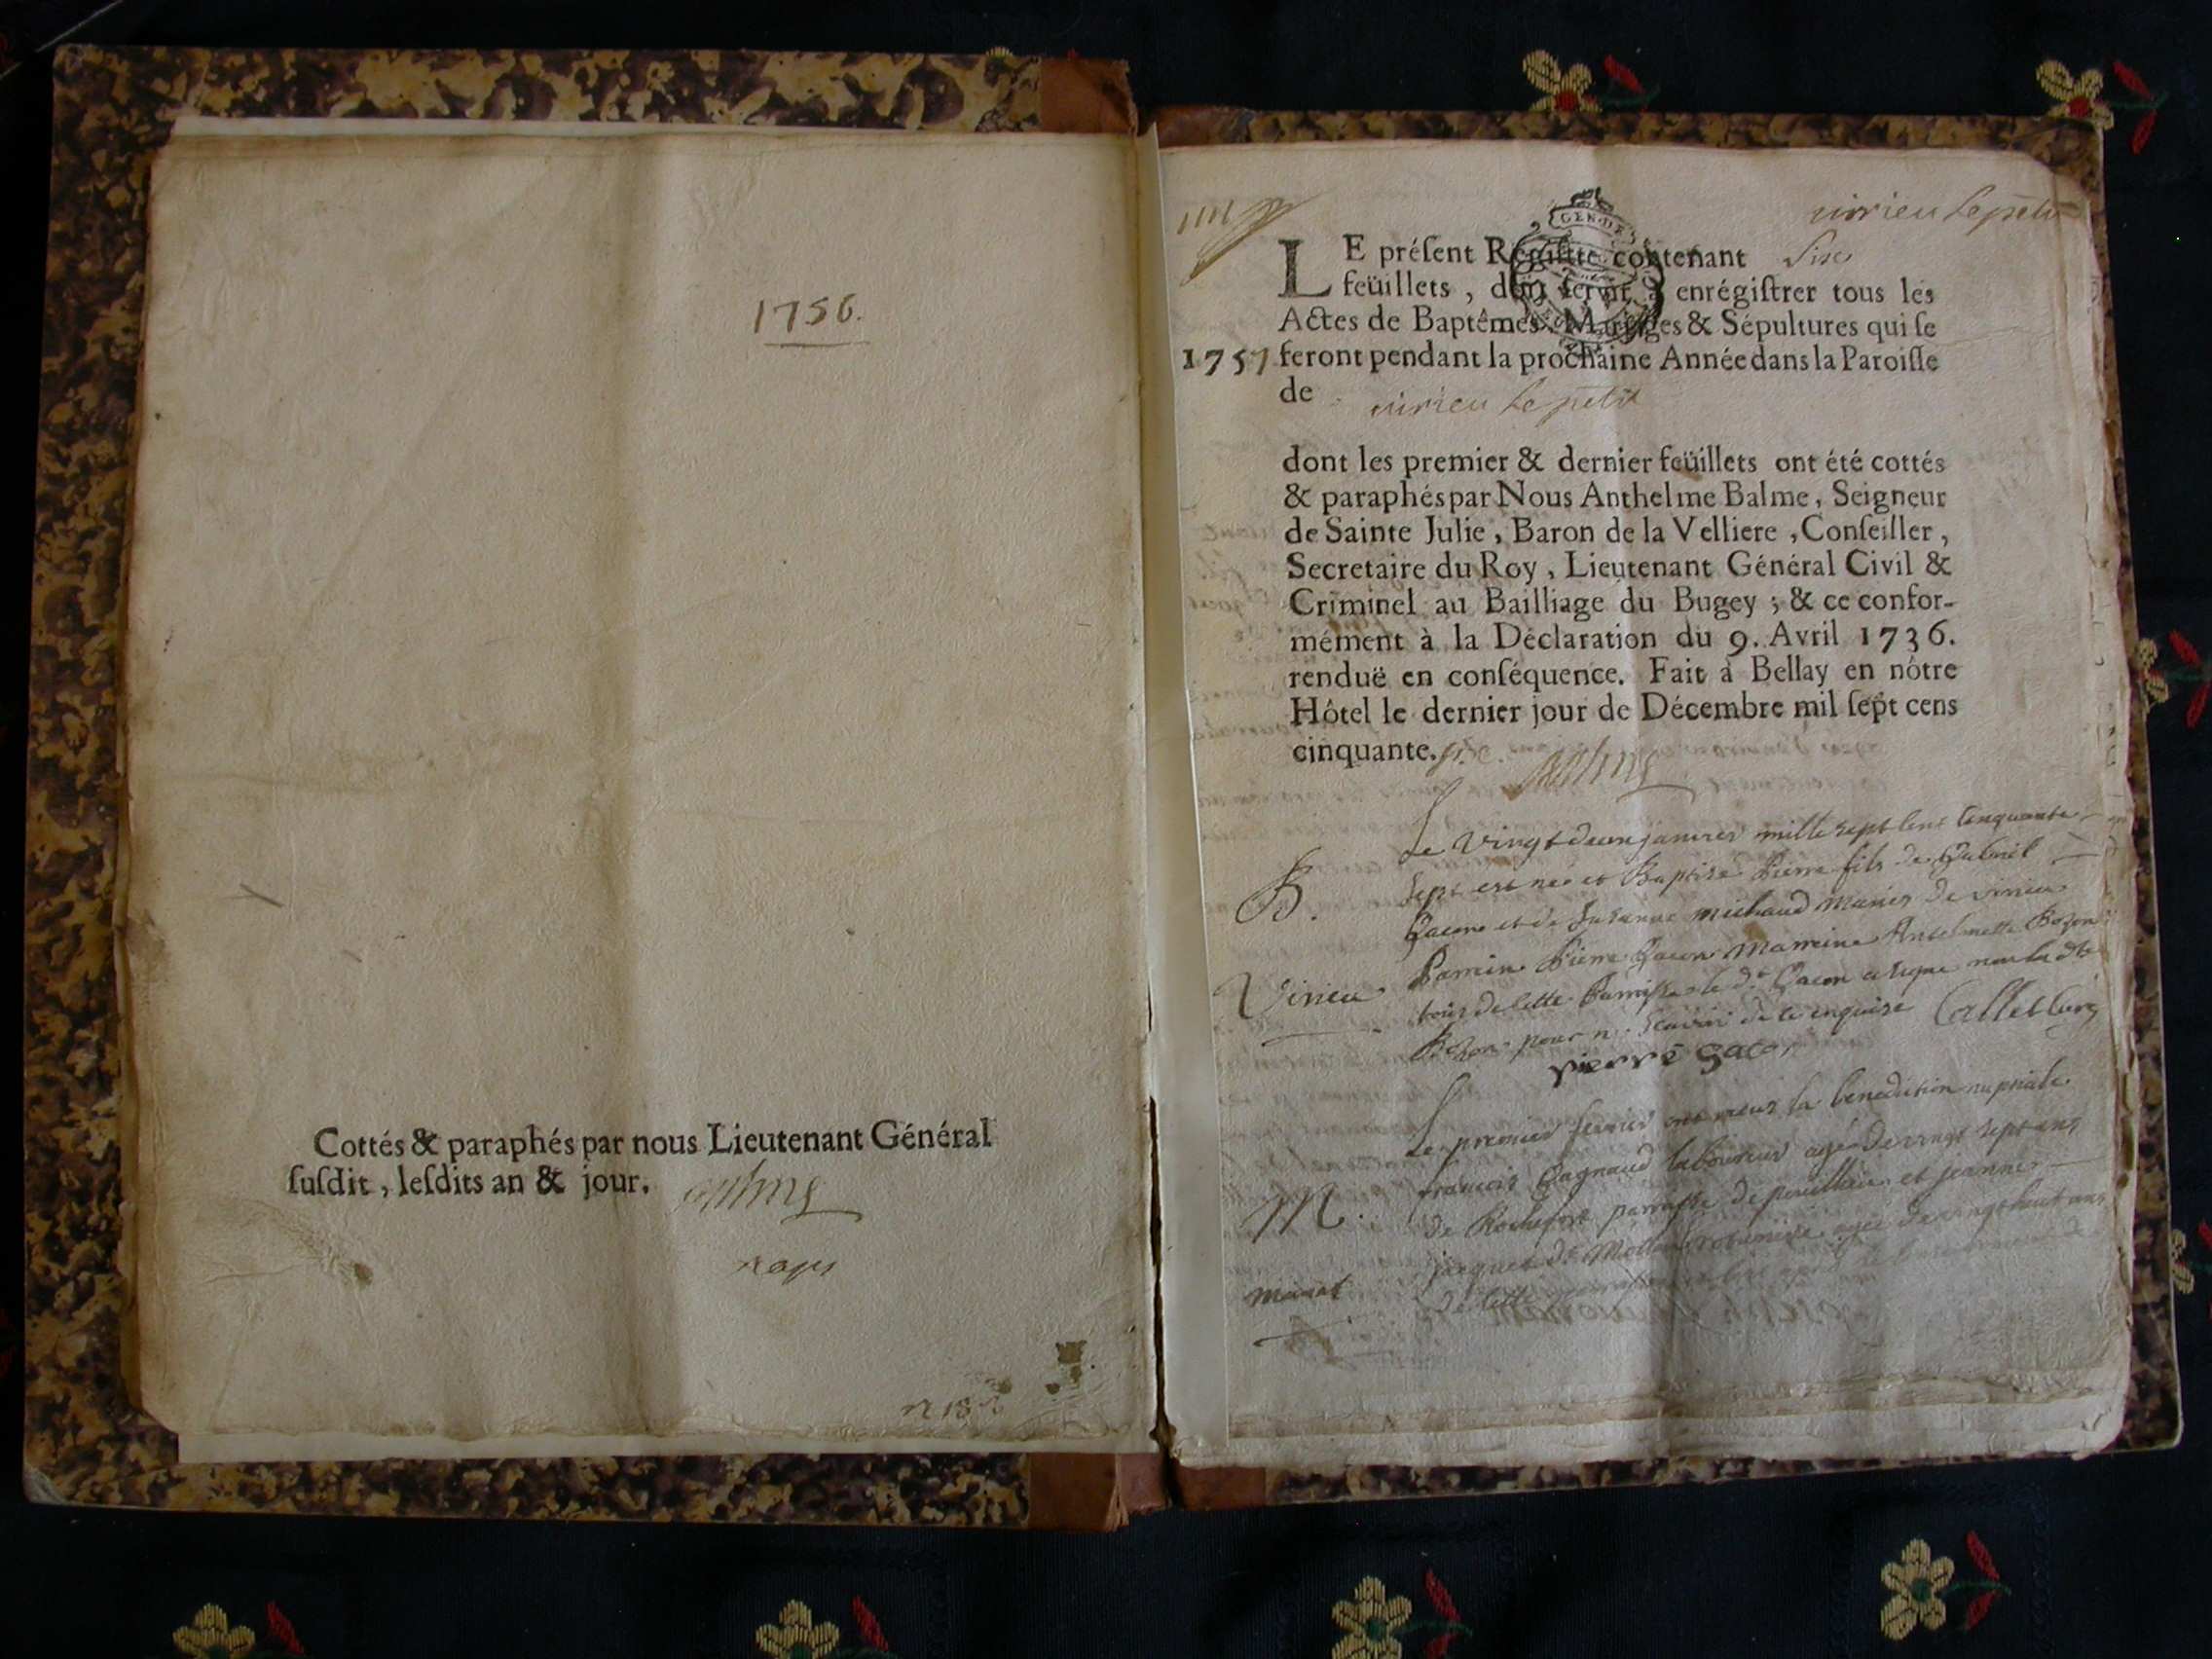 1756.
Cottés & paraphés par nous Lieutenant Général
ſuſdit, leſdits an & jour.
virieu Le petit
GEN. DE
LE préſent Régiſtre contenant Six
feüillets, doit ſervir à enrégiſtrer tous les
Actes de Baptêmes, Mariages & Sépultures qui ſe
1757 feront pendant la prochaine Année dans la Paroiſſe
de virieu Le petit
dont les premier & dernier feüillets ont été cottés
& paraphés par Nous Anthelme Balme, Seigneur
de Sainte Julie, Baron de la Velliere, Conſeiller,
Secretaire du Roy, Lieutenant Général Civil &
Criminel au Bailliage du Bugey; & ce confor-
mément à la Déclaration du 9. Avril 1736.
renduë en conſéquence. Fait à Bellay en nôtre
Hôtel le dernier jour de Décembre mil ſept cens
cinquante.
Le vingt deux janvier mille sept cent cinquante
B. sept est né et Baptisé Pierre fils de Gabriel
Gacon et de Susanne michaud mariés de virieu
Virieu Parrein Pierre Gacon Marreine Antelmette Bozon
tous de cette Parroisse le dt Gacon a signé non la dte
Bozon pour n. scavoir de ce enquise Callet Curé
Pierre gacon
Le premier fevrier ont receus la benediction nuptiale
françois Gagnaud laboureur agé de vingt sept ans
M. de Rochefort parroisse de et jeanne
jacquet de agée de vingt huit ans
de cette